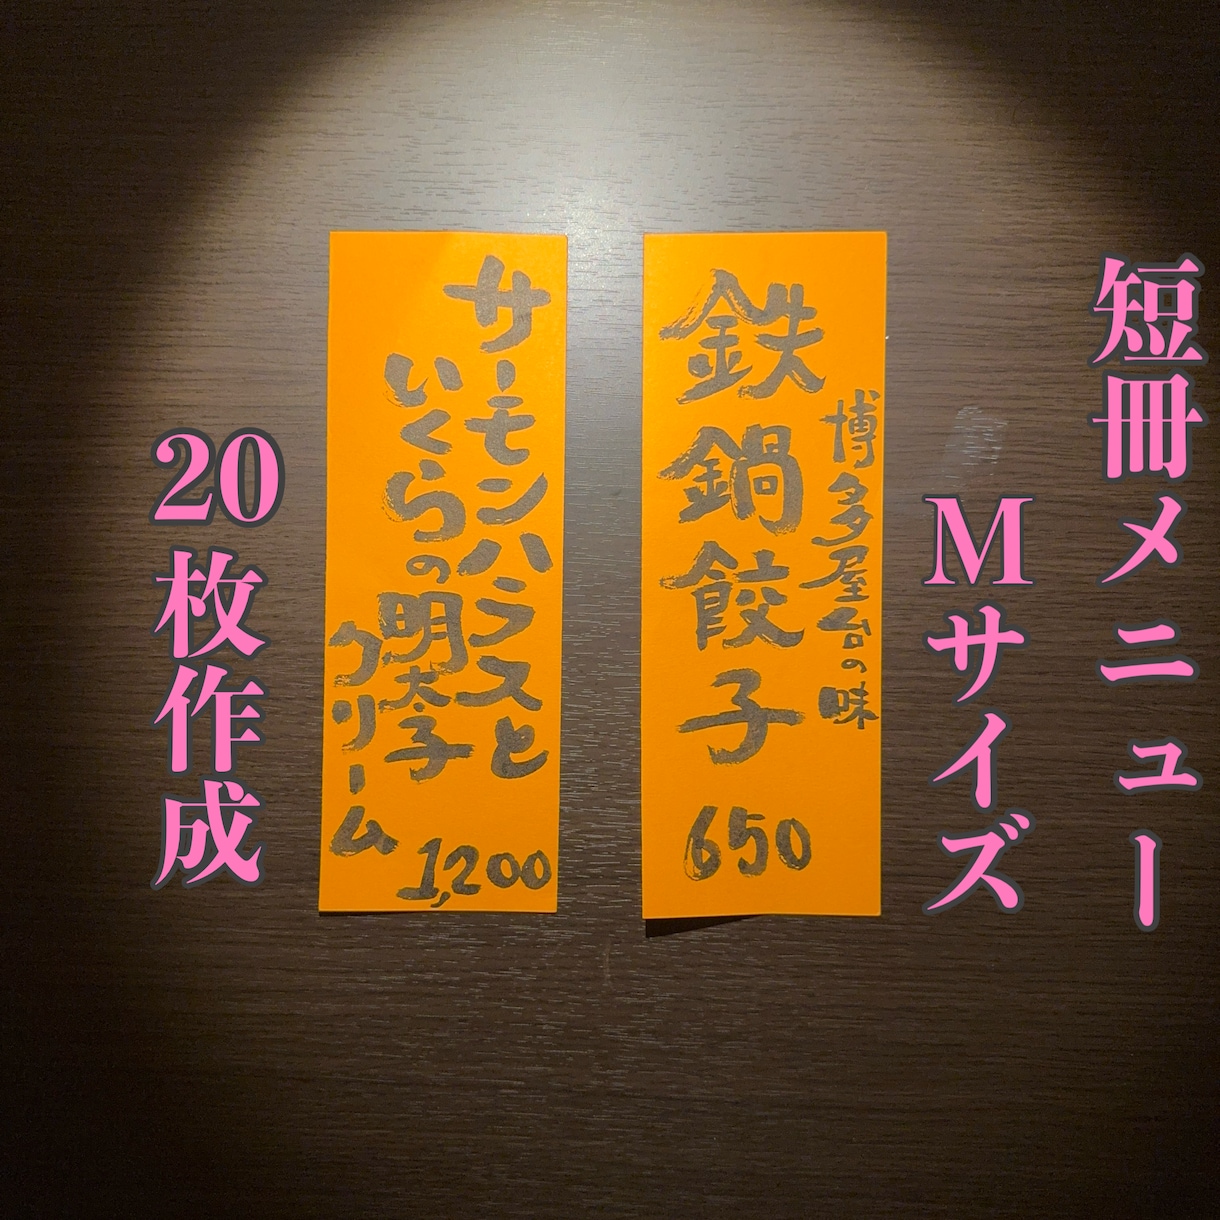 短冊メニュー
Mサイズ
博多屋台の味
鉄鍋餃子
650
サーモンハラスと
いくらの明太子
クリーム
1,200
20枚作成